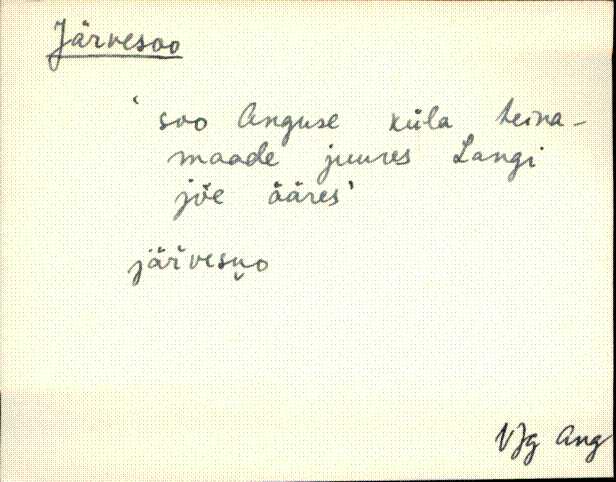 Järvesoo
'soo Anguse küla heina-
maade juures Langi
jõe ääres'
järvesu̮o
VJg Ang